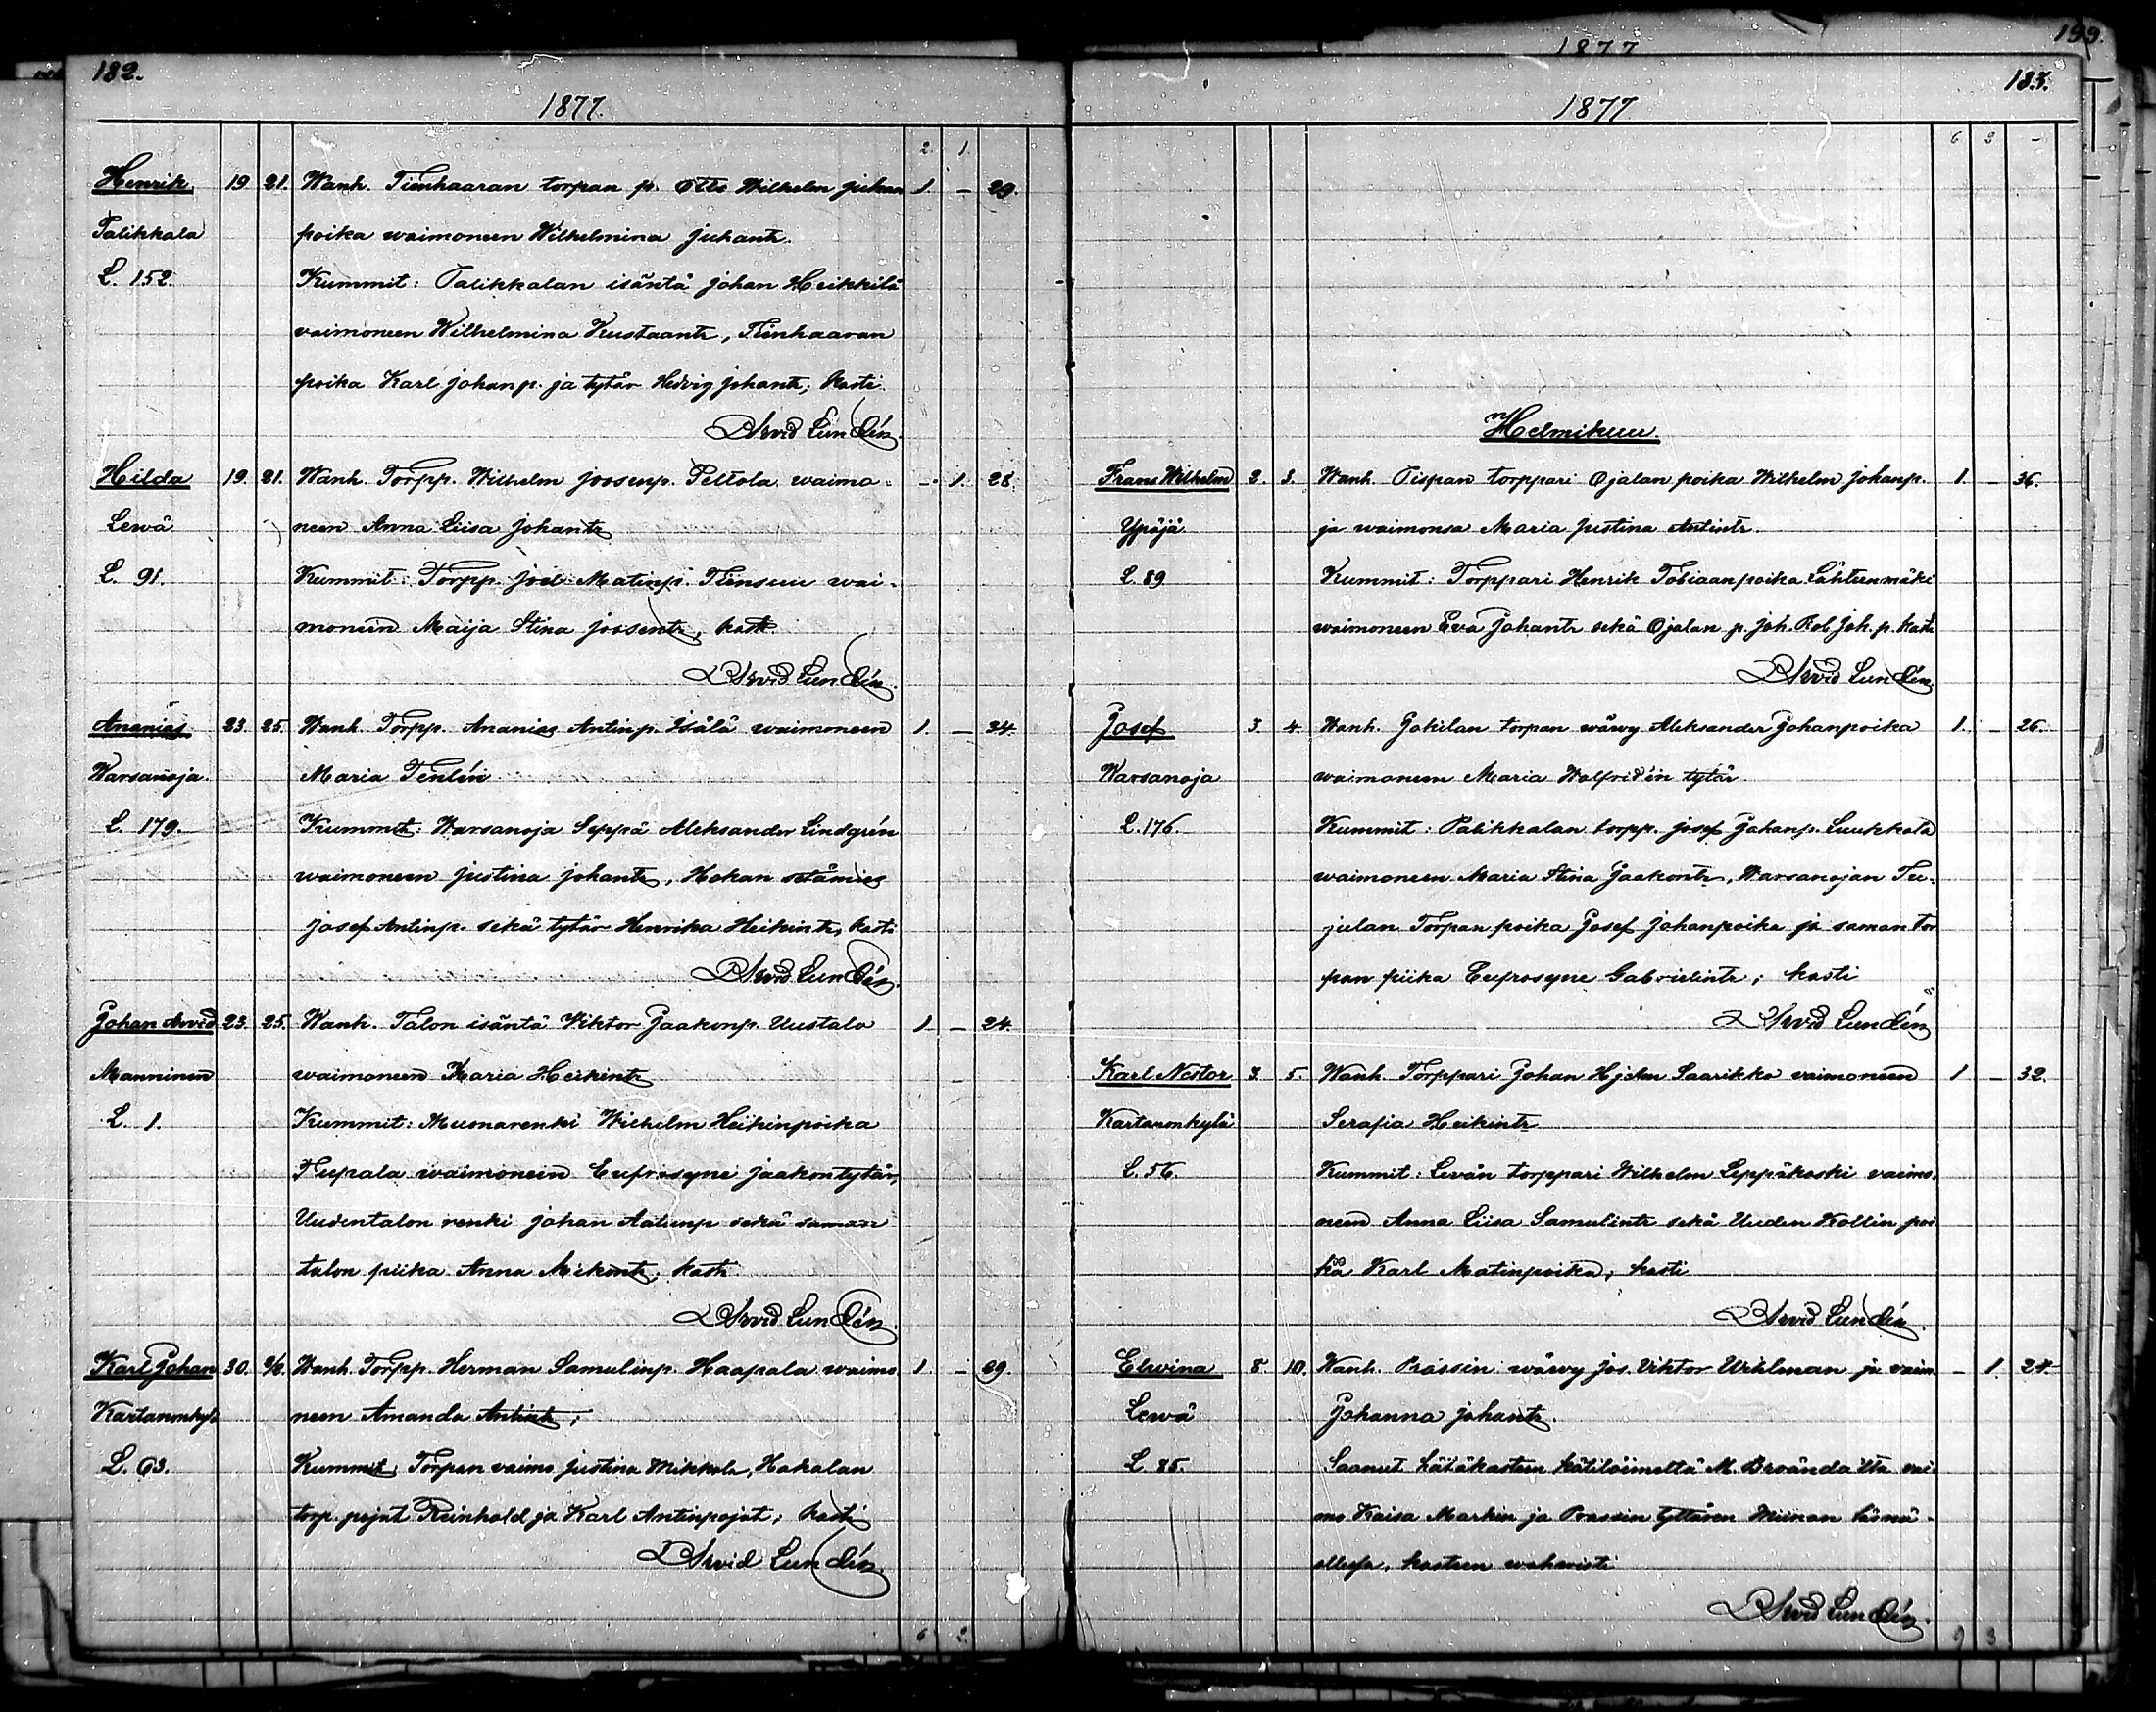 182.
1877.
2. 1.
Henrik 19 21. Wanh. Tienhaaran torpan p. Otto Wilhelm juhan 1. – 29.
Palikkala poika waimoneen Wilhelmina juhantr.
L. 152. Kummit: Palikkalan isäntä johan Heikkilä
vaimoneen Wilhelmina Kustaantr, Tienhaaran
poika Karl johanp. ja tytär Hedvig johantr; kasti
Arvid Lundén.
Hilda 19. 21. Wanh. Torpp. Wilhelm joosenp. Peltola waimo- – 1. 28.
Lewä neen Anna Liisa johantr
L. 91. Kummit: Torpp. joel Matinp. Tiensuu wai-
moneen Maija Stina joosentr, kast.
Arvid Lundén.
Ananias 23. 25. Wanh. Torpp. Ananias Antinp. Isälä waimoneen 1. – 34.
Warsanoja. Maria Tenlén
L. 179. Kummit: Warsanoja Seppä Aleksander Lindgrén
waimoneen justina johantr, Hakan setämies
josef Antinp. sekä tytär Henrika Heikintr, kasti
Arvid Lundén.
Johan Arvid 23. 25. Wanh. Talon isäntä Viktor Jaakonp. Uustalo 1 – 24.
Manninen waimoneen Maria Heikintr
L. 1. Kummit: Muonarenki Wilhelm Heikinpoika
Tupala waimoneen Eufrosyne jaakontytär,
Uudentalon renki johan Aatunp sekä saman
talon piika Anna Mikontr, kasti
Arvid Lundén.
Karl Johan 30. 2/2. Wanh. Torpp. Herman Samulinp. Haapala waimo 1. – 29.
Kartanonkylä neen Amanda Antintr;
L. 63. Kummit: Torpan vaimo justina Mikkola, Hakalan
torp. pojat Reinhold ja Karl Antinpojat; kasti
Arvid Lundén.
6 2.
1877
199.
183.
1877
6 2 –
Helmikuu.
Frans Wilhelm 2. 3. Wanh. Pispan torppari Ojalan poika Wilhelm johanp. 1. – 36.
Ypäjä ja waimonsa Maria justina Antintr.
L. 89 Kummit: Torppari Henrik Tobiaanpoika Lähteenmäki
waimoneen Eva Johantr sekä Ojalan p. joh. Rob. joh. p. kasti
Arvid Lundén.
Josef 3. 4. Wanh. Jokilan torpan wäwy Aleksander Johanpoika 1. – 26.
Warsanoja waimoneen Maria Wolfridin tytär
L. 176. Kummit: Palikkalan torpp. josef Johanp. Luukkala
waimoneen Maria Stina Jaakontr, Warsanojan Tu-
julan Torpan poika Josef Johanpoika ja saman tor
pan piika Eufrosyne Gabrielintr; kasti
Arvid Lundén
Karl Nestor 3. 5. Wanh. Torppari Johan Hjelm Saarikko vaimoneen 1 – 32.
Kartanonkylä Serafia Heikintr
L. 56. Kummit: Levän torppari Wilhelm Leppäkoski vaimo-
neen Anna Liisa Samulintr sekä Uuden Kollin poi
ka Karl Matinpoika; kasti
Arvid Lundén.
Elwina 8. 10. Wanh. Prässin wäwy jos. Viktor Urihlman ja vaim. – 1. 24.
Lewä Johanna johantr.
L. 85. Saanut hätäkasteen kätilöimeltä M. vai-
mo Kaisa Markin ja Prassin tyttären Miinan läsnä-
ollessa, kasteen wahwisti
Arvid Lundén.
9 3